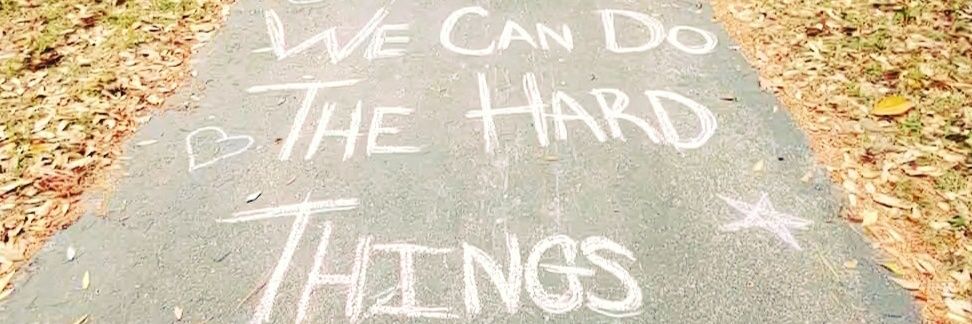 WE CAN DO
THE HARD
THINGS